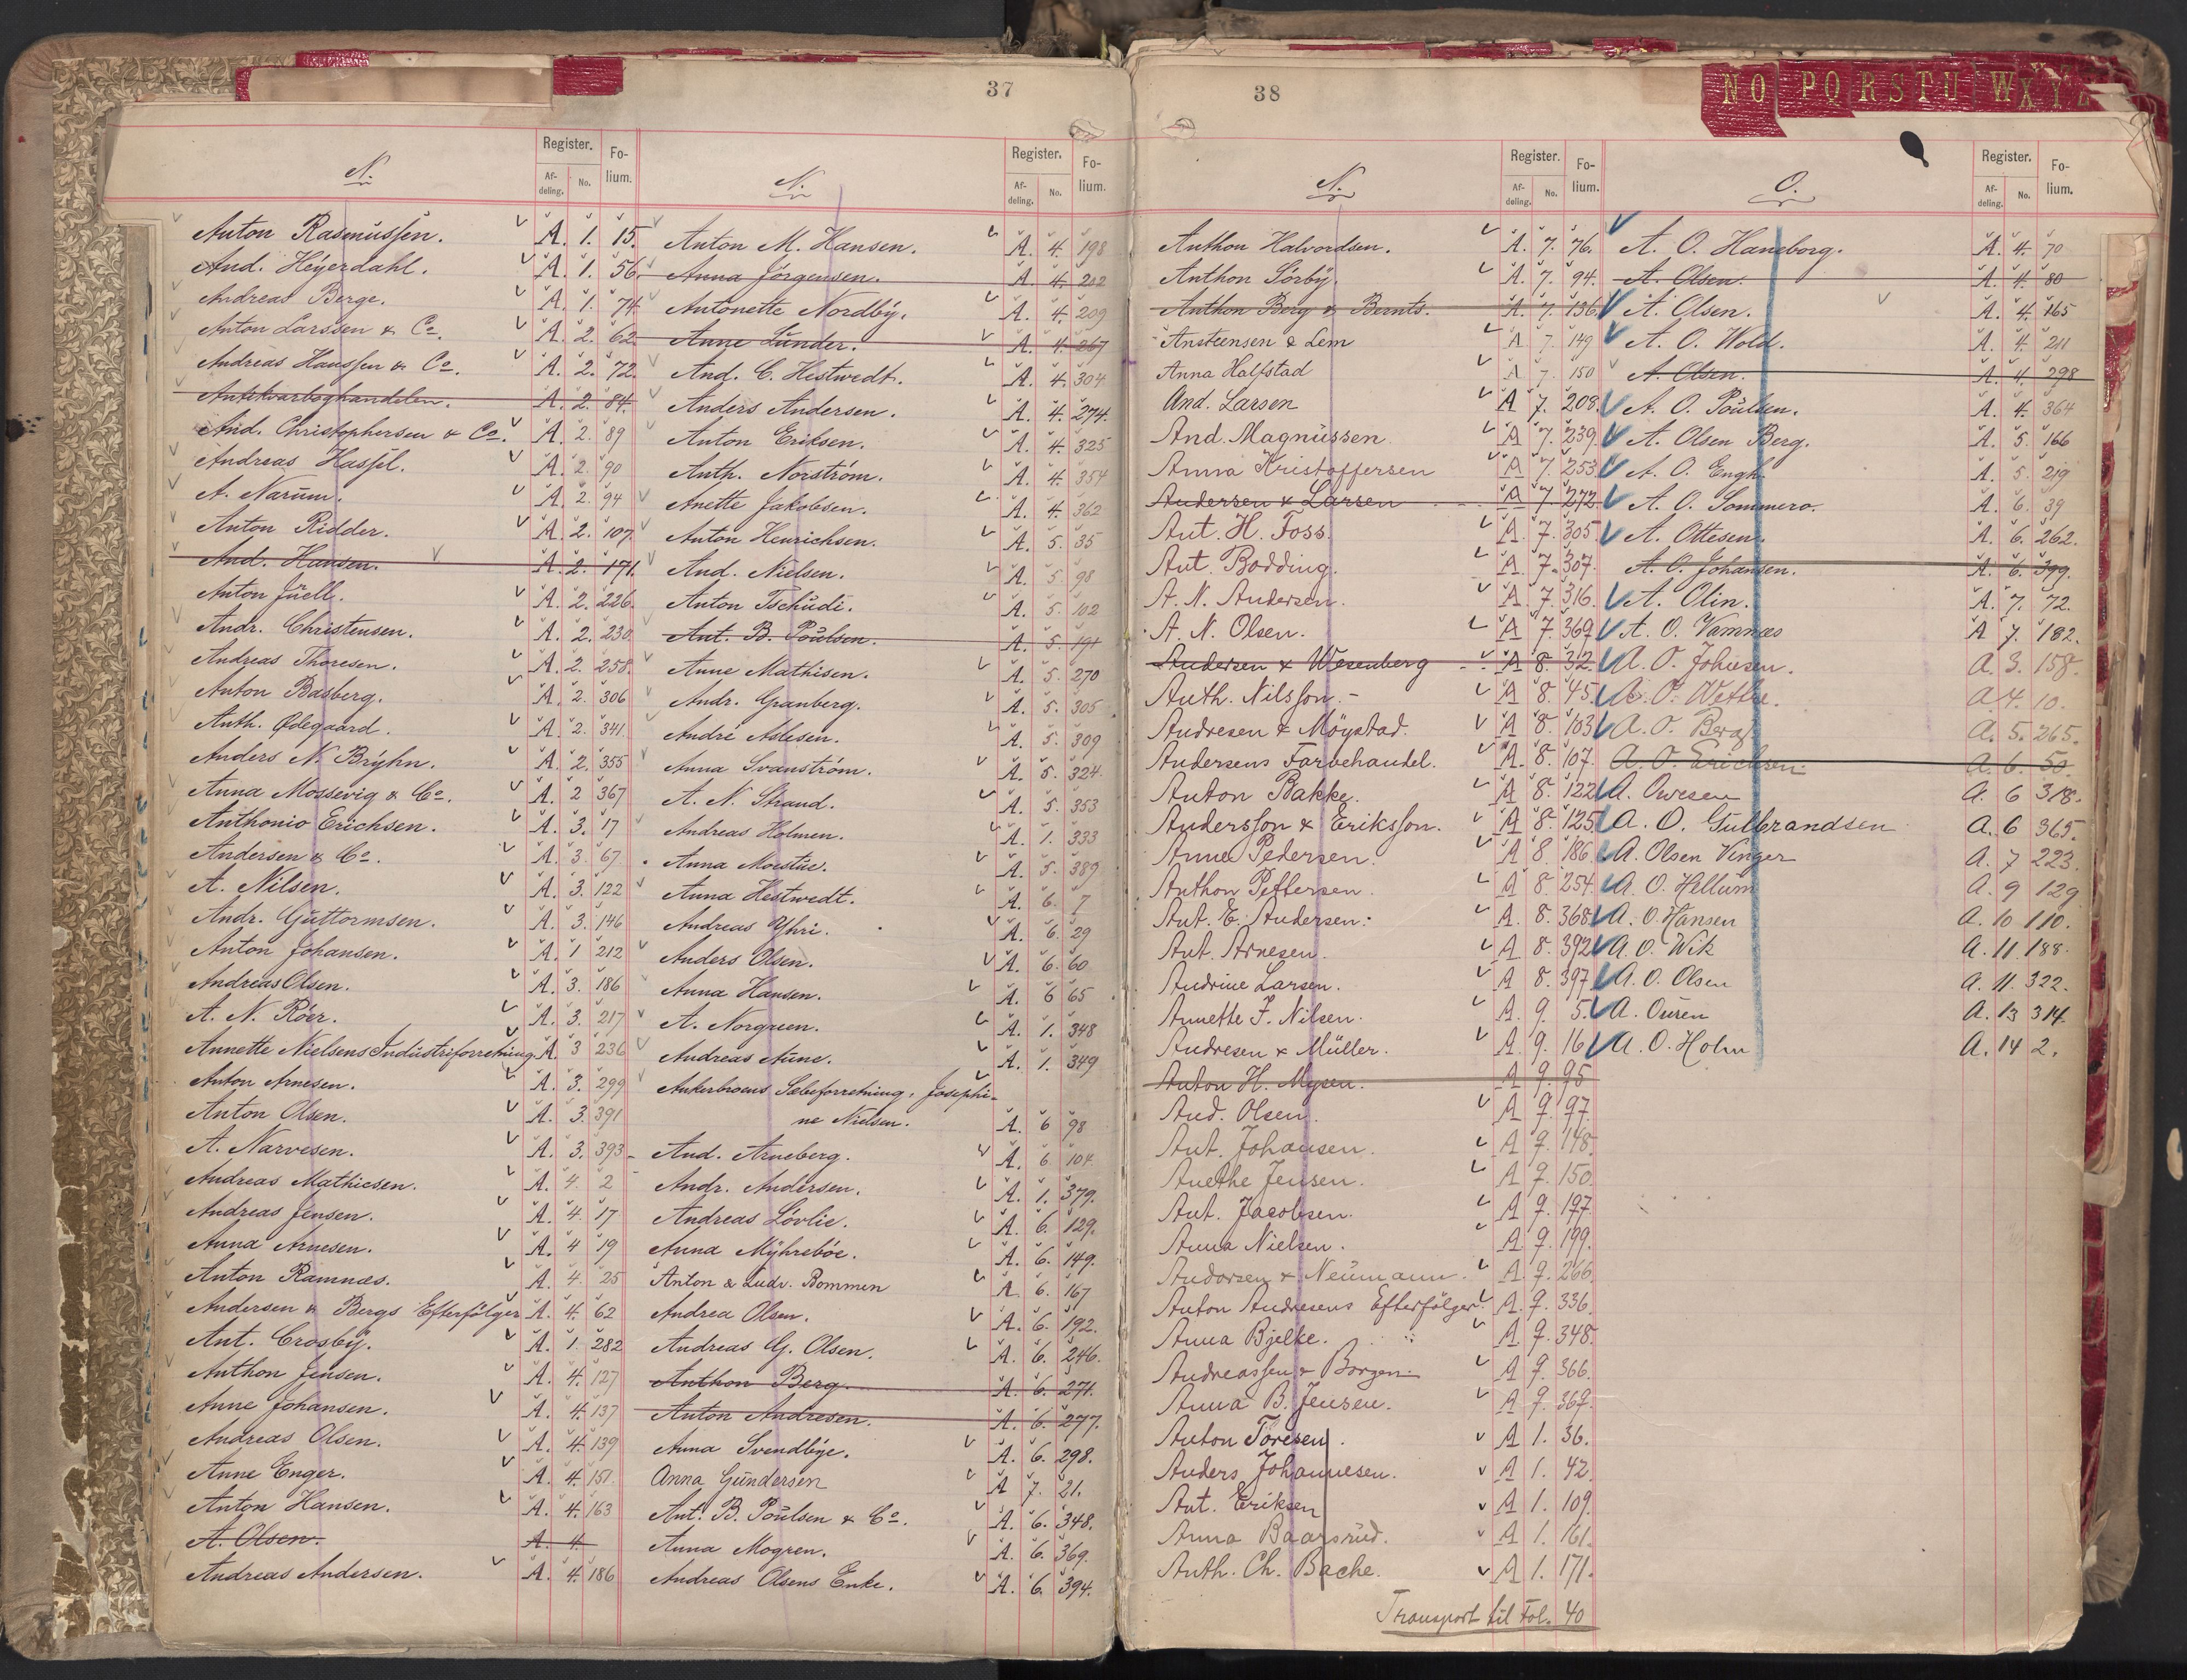 37
N.
Register.
Fo-
lium.
Af-
deling.
No.
Anton Rasmussen. A. 1. 15.
And. Heyerdahl. A. 1. 56.
Andreas Berge. A. 1. 74.
Anton Larssen & Co. A. 2. 62.
Andreas Hanssen & Co. A. 2. 72.
Antikvarboghandelen. A. 2. 84.
And. Christophersen & Co. A. 2. 89
Andreas Hasfil. A. 2. 90
A. Narum. A. 2. 94
Anton Ridder. A. 2. 107.
And. Hansen. A. 2. 171.
Anton Juell. A. 2. 226.
Andr. Christensen. A. 2. 230.
Andreas Thoresen. A. 2. 258.
Anton Basberg. A. 2. 306
Anth. Ødegaard. A. 2. 341.
Anders N. Bryhn. A. 2. 355
Anna Mossevig & Co. A. 2 367
Anthonio Erichsen. A. 3. 17
Andersen & Co. A. 3. 67
A. Nilsen. A. 3. 122
Andr. Guttormsen. A. 3. 146
Anton Johansen. A. 1 212
Andreas Olsen. A. 3. 186
A. N. Röer. A. 3. 217
Annette Nielsens Industriforretning A. 3 236
Anton Arnesen. A. 3. 299
Anton Olsen. A. 3. 391
A. Narvesen. A. 3. 393
Andreas Mathiesen. A. 4. 2
Andreas Jensen. A. 4. 17
Anna Arnesen. A. 4 19
Anton Ramnæs. A. 4. 25
Andersen & Bergs Efterfölger A. 4. 62
Ant. Crosby. A. 1. 282
Anthon Jensen. A. 4. 127
Anne Johansen. A. 4. 137
Andreas Olsen. A. 4. 139
Anne Enger. A. 4. 151.
Anton Hansen. A. 4. 163
A. Olsen. A. 4.
Andreas Andersen. A. 4. 186
N.
Register.
Fo-
lium.
Af-
deling.
No.
Anton M. Hansen. A. 4. 198
Anna Jörgensen. A. 4. 202
Antonette Nordby. A. 4. 209
Anne Lunder. A. 4. 267
And. C. Hestwedt. A. 4. 304
Anders Andersen. A. 4. 274.
Anton Eriksen. A. 4. 325
Anth. Norström. A. 4. 354
Anette Jakobsen. A. 4. 362
Anton Henrichsen. A. 5. 35
And. Nielsen. A. 5. 98
Anton Tschudi. A. 5. 102
Ant. B. Poulsen. A. 5. 191
Anne Mathisen. A. 5. 270
Andr. Granberg. A. 5. 305
André Aslesen. A. 5. 309
Anna Svanström. A. 5. 324.
A. N. Strand. A. 5. 353
Andreas Holmen. A. 1. 333
Anna Moestue. A. 5. 389
Anna Hestwedt. A. 6. 7
Andreas Yhri. A. 6. 29
Anders Olsen. A. 6. 60
Anna Hansen. A. 6 65
A. Norgreen. A. 1. 348
Andreas Aune. A. 1. 349
Ankerbroens Sæbeforretning, Josephi-
ne Nielsen. A. 6 98
And. Arneberg. A. 6 104.
Andr. Andersen. A. 1. 379.
Andreas Lövlie. A. 6. 129.
Anna Myhreböe. A. 6. 149.
Anton & Ludv. Rommen A. 6. 167
Andrea Olsen. A. 6. 192.
Andreas G. Olsen. A. 6. 246.
Anthon Berg. A. 6. 271.
Anton Andresen. A. 6. 277.
Anna Svendbye. A. 6. 298.
Anna Gundersen A 7. 21.
Ant. B. Poulsen & Co. A. 6. 348.
Anna Mogren. A. 6. 369.
Andreas Olsens Enke. A. 6. 394.
38
N O P Q R S T U W X Y Z
N.
Register.
Fo-
lium.
Af-
deling.
No.
Anthon Halvordsen. A. 7. 76.
Anthon Sörby. A. 7. 94.
Anthon Berg & Bernts. A. 7. 136.
Ansteensen & Lem A 7. 149
Anna Halfstad A 7. 150
And. Larsen A 7. 208.
And. Magnussen A 7. 239.
Anna Kristoffersen A 7. 253
Andersen & Larsen A 7. 272.
Ant. H. Foss. A 7. 305.
Ant. Bodding. A 7. 307.
A. N. Andersen. A 7. 316.
A. N. Olsen. A 7. 369
Andersen & Wesenberg A 8. 32.
Anth. Nilsson. A 8. 45.
Andresen & Möystad. A 8. 103
Andersens Farvehandel. A. 8. 107.
Anton Bakke. A 8. 122
Andersson & Eriksson. A 8. 125.
Anne Pedersen. A 8. 186
Anthon Pettersen. A 8. 254.
Ant. E. Andersen. A 8. 368.
Ant. Arnesen. A 8. 392
Andrine Larsen. A 8. 397.
Annette F. Nilsen. A. 9. 5.
Andresen & Müller. A. 9. 16.
Anton H. Mysen. A 9. 95
And. Olsen. A 9. 97.
Ant. Johansen. A 9. 148.
Anethe Jensen. A 9. 150.
Ant. Jacobsen. A 9. 197.
Anna Nielsen. A 9. 199.
Andersen & Neumann. A 9. 266.
Anton Andresens Efterfölger. A. 9. 336.
Anna Bjelke. A 9. 348.
Andreassen & Borgen. A 9. 366.
Anna B. Jensen. A 9. 367.
Anton Toresen. A 1. 36.
Anders Johannesen. A 1. 42.
Ant. Eriksen A 1. 109.
Anna Baarsrud. A 1. 161.
Anth. Ch. Bache. A 1. 171.
Transport til Fol. 40
O.
Register.
Fo-
lium.
Af-
deling.
No.
A. O. Haneborg. A. 4. 70
A. Olsen. A. 4. 80
A. Olsen. A. 4. 165
A. O. Wold. A. 4. 211
A. Olsen. A. 4. 298
A. O. Poulsen. A. 4. 364
A. Olsen Berg. A. 5. 166
A. O. Engh. A. 5. 219
A. O. Sommero. A. 6. 39
A. Ottesen. A. 6. 262.
A. O. Johansen. A. 6. 399.
A. Olin. A. 7. 72.
A. O. Vamnæs A 7. 182.
A. O. Johnsen. A. 3. 158.
A. O. Wethe. A 4. 10.
A. O. Berg. A. 5. 265.
A. O. Erichsen. A. 6. 50.
A. Owesen A. 6 318.
A. O. Gulbrandsen A. 6 365.
A. Olsen Vinger A. 7 223.
A. O. Hellum A. 9 129
A. O. Hansen A. 10 110.
A. O. Wik A. 11. 188.
A. O. Olsen A. 11. 322.
A. Ouren A. 13 314.
A. O. Holm A. 14 2.